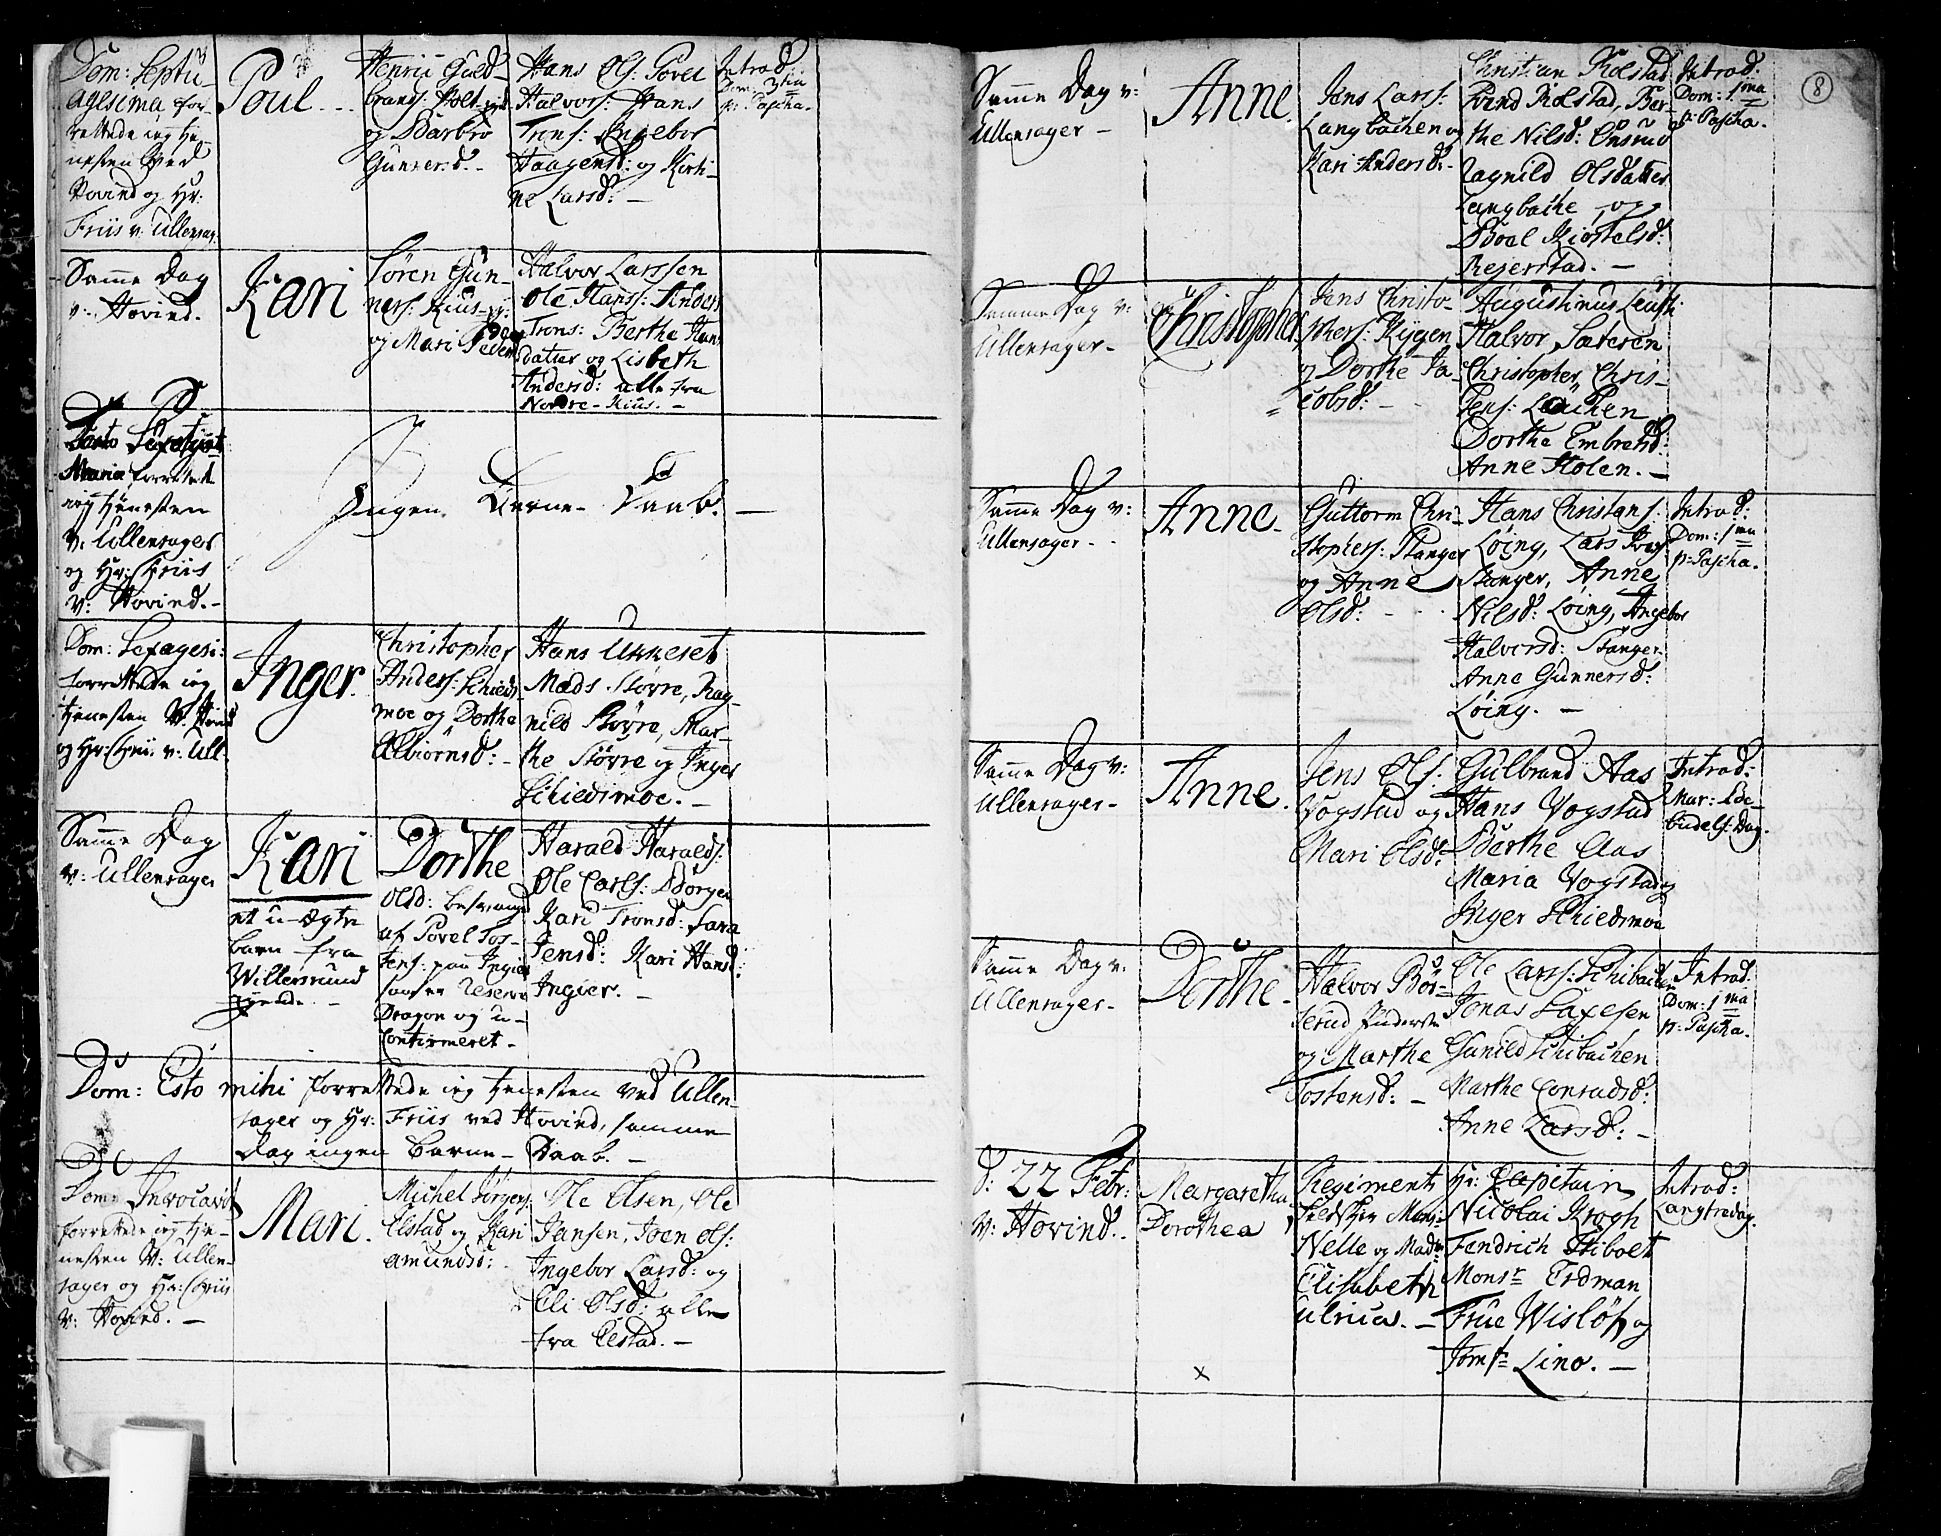 Dom: Septu
agesima, for-
rettede ieg tje-
nesten Ved
Hovind og Hr:
Friis v: Ullensag:
Poul
Henric Guld-
brands: Holt
og Barbro
Gunnersd.
Hans Ols: Povel
Halvors: Hans
Trons: Ingebor
Haagensd: og Kirsti-
ne Larsd: -
Introd:
Dom:
p: Pascha.
Samme Dag
v: Hovind.
Kari
Søren Gun-
ners: Kius
og Mari Peders
Halvor Larssen
Ole Hanss: Anders
Trons: Berthe Hans
datter og Lisbeth
Andersd: alle fra
Nordre-Kius. -
Festo
Mariæ forrettet
ieg tjenesten
V: Ullensager
og Hr: Friis
V: Hovind. -
Ingen Barne- Daab. -
Dom: Sexagesi:
forrettede ieg
tjenesten V: Hovind
og Hr: Friis v: Ull.
Inger.
Christopher
Anders: Schieds-
moe og Dorthe
Albiørnsd: -
Hans Ukkeset
Mads Støvre, Rag-
nild Støvre, Mar-
the Støvre og Inger
Schiedsmoe. -
Samme Dag
v: Ullensager
Kari
et u-ægte
barn fra
Willersrund
Dorthe
Olsd: besvanget
af Povel Tos-
tens: paa Ingier
Reserve
Dragon og u-
Confirmeret -
Harald Haralds:
Ole Carls: Børger
Kari Tronsd: Sara
Jensd: Kari Hansd:
Ingier. -
Dom: Esto mihi forrettede ieg tjenesten ved Ullen-
sager og Hr: Friis ved Hovind, samme
Dag ingen Barne- Daab. -
Dom: Invocavit
forrettede ieg tje-
nesten V: Ullen-
sager og Hr: Friis
V: Hovind. -
Mari.
Michel Jørgens:
Elstad og Kari
Amundsd:
Ole Olsen, Ole
Jansen, Joen Ols:
Ingebor Larsd: og
Eli Olsd: alle
fra Elstad. -
8
Samme Dag v:
Ullensager -
Anne.
Jens Larss:
Langbachen og
Kari Andersd: -
Christian Kolstad
Svend Kolstad, Ber-
the Nilsd: Onsrud
Ragnild Olsdatter
Langbache og
Boel Kiostelsd:
Rejerstad. -
Introd:
Dom: 1ma
p: Pascha.
Samme Dag v:
Ullensager -
Christopher
Jens Christo-
phers: Rygen
og Dorthe Ja-
cobsd: -
Augustinus
Halvor Sæteren
Christopher Chris-
tens: Løchen
Dorthe Embretsd:
Anne Holen. -
Samme Dag v:
Ullensager -
Anne.
Guttorm Chri-
stophers: Stanger
og Anne
Olsd: -
Hans Christens:
Løing, Lars
Stanger, Anne
Nilsd: Løing, Ingebor
Halvorsd: Stanger
Anne Gunnersd:
Løing. -
Introd:
Dom: 1ma
p: Pascha.
Samme Dag v:
Ullensager -
Anne.
Jens Ols:
Vogstad og
Mari Olsd:
Gulbrand Aas
Hans Vogstad
Berthe Aas
Maria Vogstad og
Inger Schiedsmoe
Introd:
Mar: Be-
budels: Dag.
Samme Dag v:
Ullensager -
Dorthe.
Halvor Bør-
serud
og Marthe
Tostensd: -
Ole Larss: Schibachen
Jonas Saxesen
Gunild Schibachen
Marthe Conradsd:
Anne Larsd: -
Introd:
Dom: 1ma
p: Pascha.
d: 22 Febr:
v: Hovind.
Margaretha
Dorothea
Regiments
Feldskier Mons:
Nelle og Mad:
Elisabeth
Ulrica. -
Hr: Capitain
Nicolai Krogh
Fendrich Stibolt
Monsr Erdman
Frue Wisløf og
Jomfr Lino. -
Introd:
Langfredag.
x